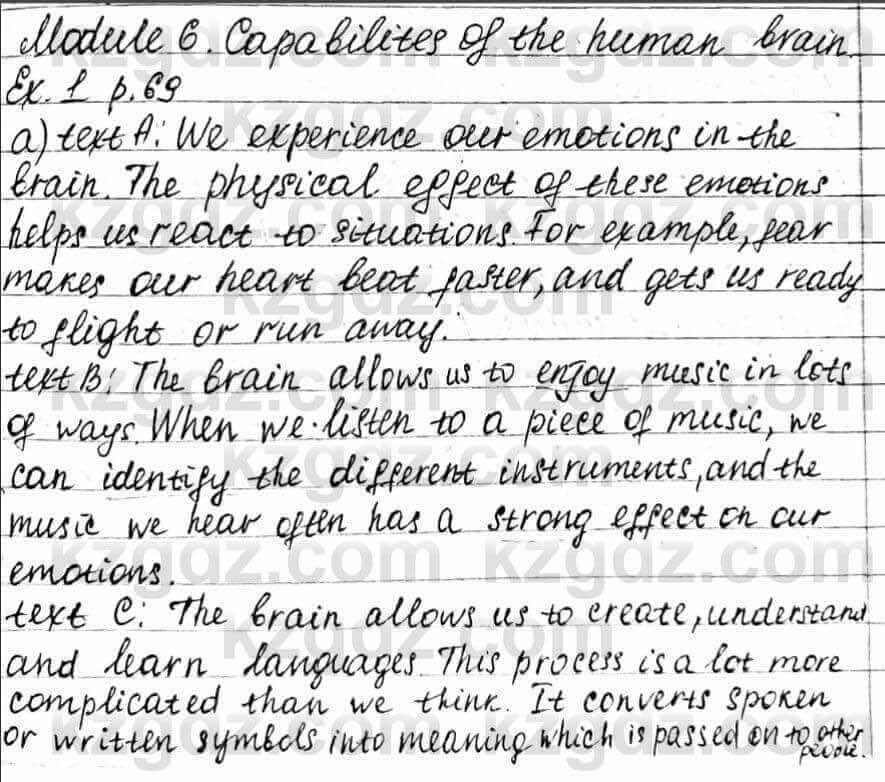 Module 6. Capabilites of the human brain.
Ex. 1 p. 69
a) text A: We experience our emotions in the
brain. The physical effect of these emotions
helps us react to situations. For example, fear
makes our heart beat faster, and gets us ready
to flight or run away.
text B: The brain allows us to enjoy music in lots
of ways. When we listen to a piece of music, we
can identify the different instruments, and the
music we hear often has a strong effect on our
emotions.
text C: The brain allows us to create, understand
and learn languages. This process is a lot more
complicated than we think. It converts spoken
or written symbols into meaning which is passed on to other
people.
kzgdz.com